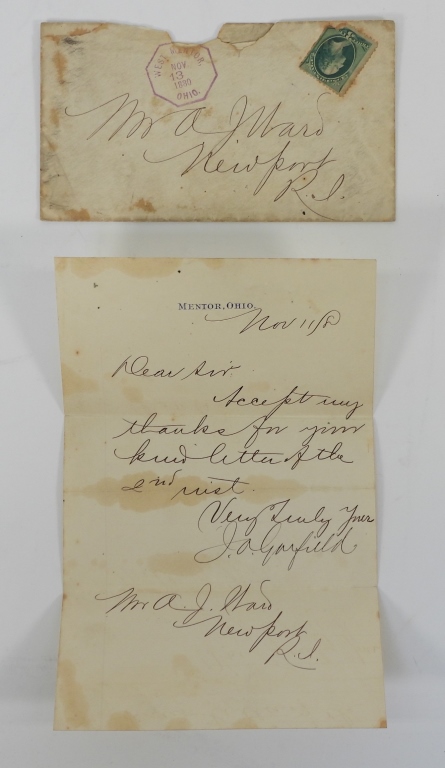 WEST MENTOR,
NOV
13
1880
OHIO.
Mr A J Ward
Newport
R.I.
MENTOR, OHIO.
Nov 11/80
Dear Sir
Accept my
thanks for your
kind letter of the
2nd inst.
Very Truly Yours
J. A. Garfield
Mr A. J. Ward
Newport
R.I.